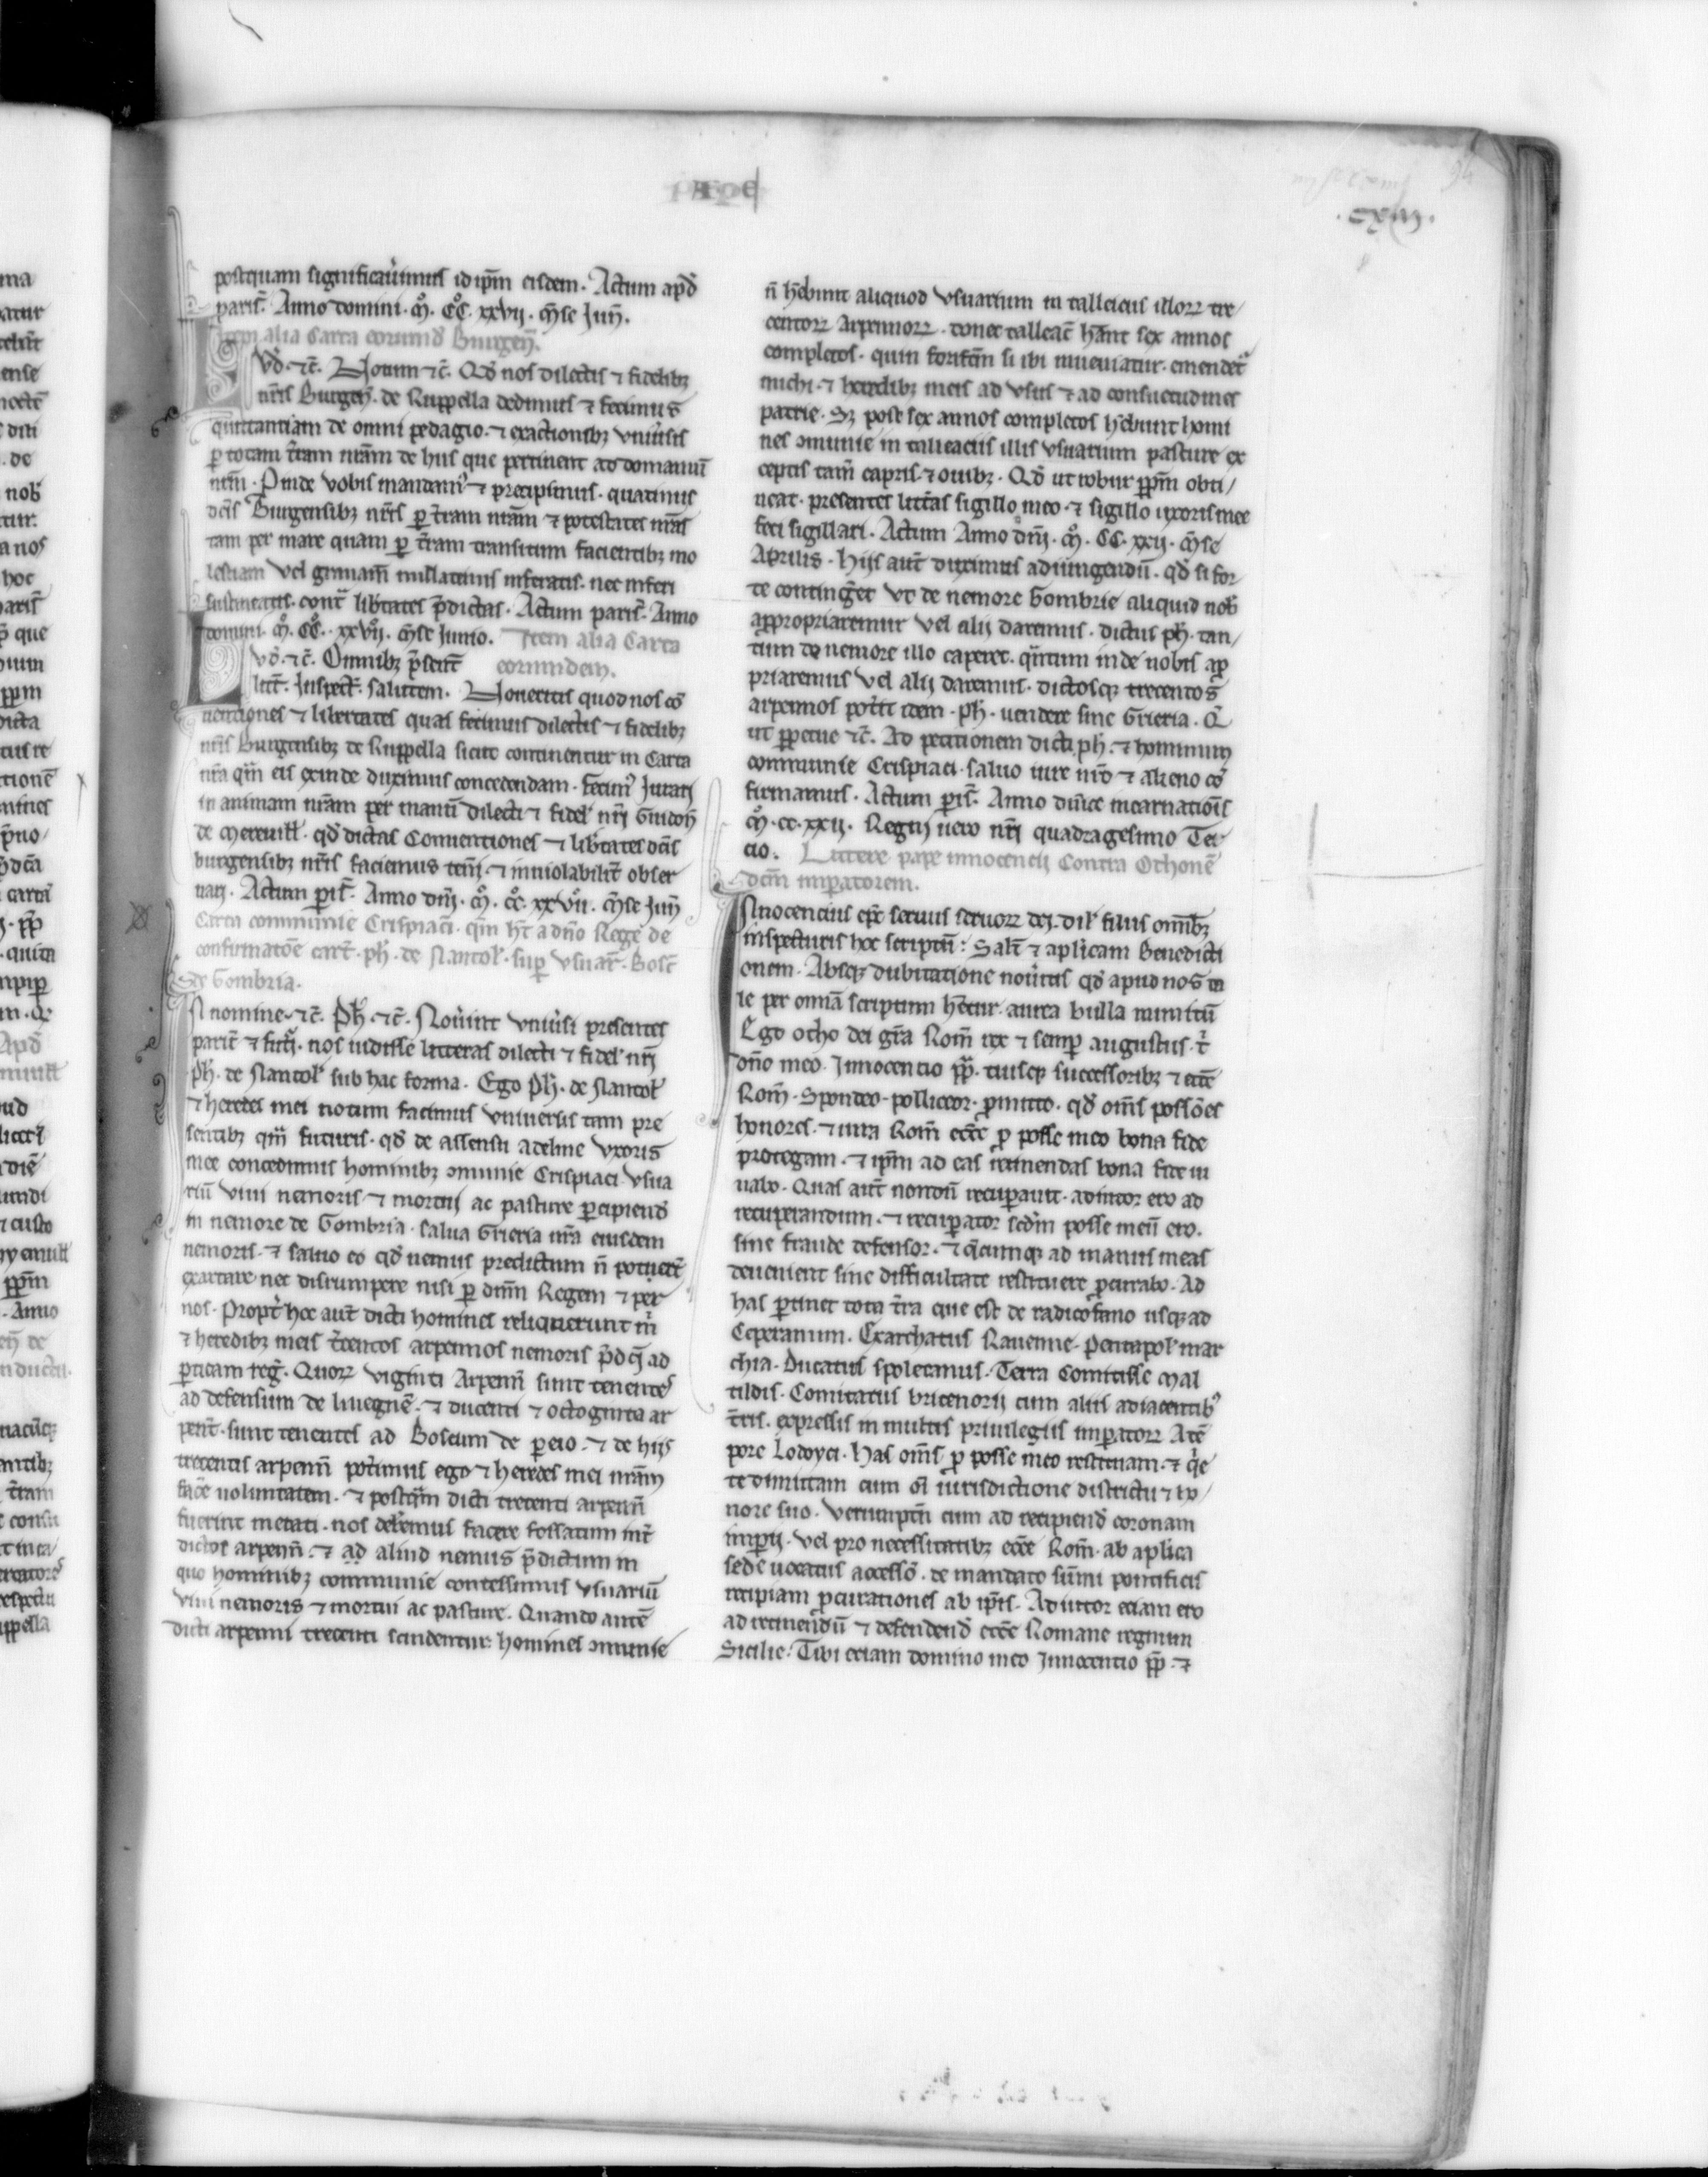 .cxiiij.
postquam significauimus id ip̄m eisdem. Actum apd̄
paris̄. Anno domini. M̊. CC̊. xxvij. M̄se Jun̄.
Item alia Carta eorumd̄ Burgen̄.
Lvd̄. ⁊c̄. Notum ⁊c̄. Qd̄ nos dilectis ⁊ fidelibꝫ
nr̄is Burgen̄. de Ruppella dedimus ⁊ fecimus
quittantiam de omni pedagio. ⁊ exactionibꝫ vniu̓sis
ꝑ totam t̓ram nr̄am de hiis que pertinent ad domaniū
nr̄m. Vnde vobis mandamꝰ ⁊ precipimus. quatinus
dc̄is Burgensibꝫ nr̄is ꝑ t̓ram nr̄am ⁊ potestates nr̄as
tam per mare quam ꝑ t̓ram transitum facientibꝫ mo
lestiam vel grauam̄ nullatenus inferatis. nec inferri
sustineatis. cont͂ lib̓tates p̄dictas. Actum paris̄. Anno
domini. M̊. CC̊. xxvij̊. M̄se Junio. Item alia Carta
eorumdem.
Lvd̄. ⁊c̄. Omnibꝫ p̄sent̄
litt̄. Inspect̄. salutem. Noueritis quod nos ꝯ
uentiones ⁊ libertates quas fecimus dilectis ⁊ fidelibꝫ
nr̄is Burgensibꝫ de Ruppella sicut continentur in Carta
nr̄a qͣm eis exinde duximus concedendam. fecimꝰ Jurari
in animam nr̄am per manū dilecti ⁊ fidel̓ nr̄i Guidon̄
de Mereuill̓. qd̄ dictas Conuentiones ⁊ lib̓tates dc̄is
burgensibꝫ nr̄is faciemus ten̓i ⁊ inuiolabilit̓ obser
uari. Actum par̄. Anno dn̄i. M̊. CC̊. xxvij̊. M̄se Jun̄
Carta communie Crispiaci. qͣm hn̄t a dn̄o Rege de
confirmatōe cart̄. ph̄. de Nantol̓. sup̱ vsuar̄. Bosc̄
de Gombria.
In nomine. ⁊c̄. Ph̄. ⁊c̄. Nou̓int vniu̓si presentes
parit̓ ⁊ futuͥ. nos uidisse litteras dilecti ⁊ fidel̓ nr̄i
Ph̄. de Nantol̓ sub hac forma. Ego Ph̄. de Nantol̓
⁊ heredes mei notum facimus vniuersis tam pre
sentibꝫ qͣm futuris. qd̄ de assensu Adeline vxoris
mee concedimus hominibꝫ ꝯmunie Crispiaci vsua
riū viui nemoris ⁊ mortui ac pasture ꝑcipiend̄
in nemore de Gombria. salua Grieria nr̄a eiusdem
nemoris. ⁊ saluo eo qd̄ nemus predictum n̄ potuer̄t
exartare nec disrumpere nisi ꝑ dn̄m Regem ⁊ per
nos. Propt̓ hoc aut̄ dicti homines reliquerunt m̓
⁊ heredibꝫ meis t̓centos arpennos nemoris p̄dc̄i ad
ꝑticam reg̓. Quorꝝ viginti Arpenn̄ sunt tenentes
ad defensum de liuegnē. ⁊ ducenti ⁊ octoginta ar
penn̄. sunt tenentes ad Boscum de perio. ⁊ de hijs
trecentis arpenn̄ pot̓imus ego ⁊ heredes mei nr̄am
facē uoluntatem. ⁊ postqͣm dicti trecenti arpenn̄
fuerint metati. nos debemus facere fossatum int̓
dictos arpenn̄. ⁊ ad aliud nemus p̄dictum in
quo hominibꝫ communie concessimus vsuariū
viui nemoris ⁊ mortui ac pasture. Quando autē
dicti arpenni trecenti scindentur. homines ꝯmunie
n̄ hēbunt aliquod vsuarium in talleiciis illorꝝ tre
centorꝝ Arpennorꝝ. donec talleac̄ hānt sex annos
completos. quin forifc̄m si ibi inueniatur. emendet̓
michi. ⁊ heredibꝫ meis ad vsus ⁊ ad consuetudines
patrie. Sꝫ post sex annos completos hēbunt homi
nes ꝯmunie in talleaciis illis vsuarium pasture ex
ceptis tam̄ capris ⁊ ouibꝫ. Qd̄ ut robur ꝑpm̄ obti
neat. presentes litt̓as sigillo meo. ⁊ sigillo vxoris mee
feci sigillari. Actum Anno dn̄i. M̊. CC. xxij. M̄se
Aprilis. Hijs aut̄ duximus adiungendū. qd̄ si for
te conting̓et vt de nemore Gombrie aliquid nob̄
appropriaremur vel alij daremus. dictus ph̄. tan
tum de nemore illo caperet. qͣntum inde nobis app̱
priaremus vel alij daremus. dictosqꝫ trecentos
arpennos pot̓it idem. Ph̄. uendere sine Grieria. Qͥ
ut ꝑpetue ⁊c̄. Ad petitionem dicti ph̄. ⁊ hominum
communie Crispiaci. saluo iure nr̄o ⁊ alieno ꝯ
firmamus. Actum par̄. Anno dn̄ice incarnatiōis
M̊. cc. xxij. Regni uero nr̄i quadragesimo Ter
cio. Littere pape innocencij Contra Othonē
dc̄m imꝑatorem.
Innocencius epc̄ seruus seruorꝝ dei. Dil̓ filiis om̄ibꝫ
inspecturis hoc scriptū: Salt̄ ⁊ aplicam Benedicti
onem. Absqꝫ dubitatione nou̓itis qd̄ apud nos ta
le per omnia scriptum hētur. aurea bulla munitū
Ego Otho dei gr̄a Rom̄ rex ⁊ semꝑ augustus. t̓
dn̄o meo. Innocentio pp̄. tuisqꝫ successoribꝫ ⁊ ecc̄e
Rom̄. Spondeo. polliceor. ꝓmitto. qd̄ om̄s possōes
honores. ⁊ iura Rom̄ ecc̄e ꝓ posse meo bona fide
protegam. ⁊ ip̄m ad eas retinendas bona fide iu
uabo. Quas aut̄ nondū recuꝑauit. adiutor ero ad
recuperandum. ⁊ recuꝑator scd̄m posse meū ero.
sine fraude defensor. ⁊ qͥcumqꝫ ad manus meas
deuenient sine difficultate restituere ꝓcurabo. Ad
has ꝑtinet tota t̓ra que est de radicofano usqꝫ ad
Ceperanum. Exarchatus Rauenne. Pentapol̓ mar
chia. Ducatus spoletanus. Terra Comitisse Mal
tildis. Comitatus britenorij cum aliis adiacentibꝰ
t̓ris. expressis in multis priuilegiis imꝑatorꝝ A tē
pore Lodoyci. Has om̄s ꝓ posse meo restituam. ⁊ qͥe
te dimittam cum oī iurisdictione districtu ⁊ ho
nore suo. Verumptn̄ cum ad recipiend̄ coronam
imꝑij. vel pro necessitatibꝫ ecc̄e Rom̄. ab aplica
sede uocatus accessō. de mandato sūmi pontificis
recipiam ꝓcurationes ab ip̄is. Adiutor eciam ero
ad retinendū ⁊ defendend̄ ecc̄e Romane regnum
Sicilie. Tibi eciam domino meo Innocentio pp̄. ⁊